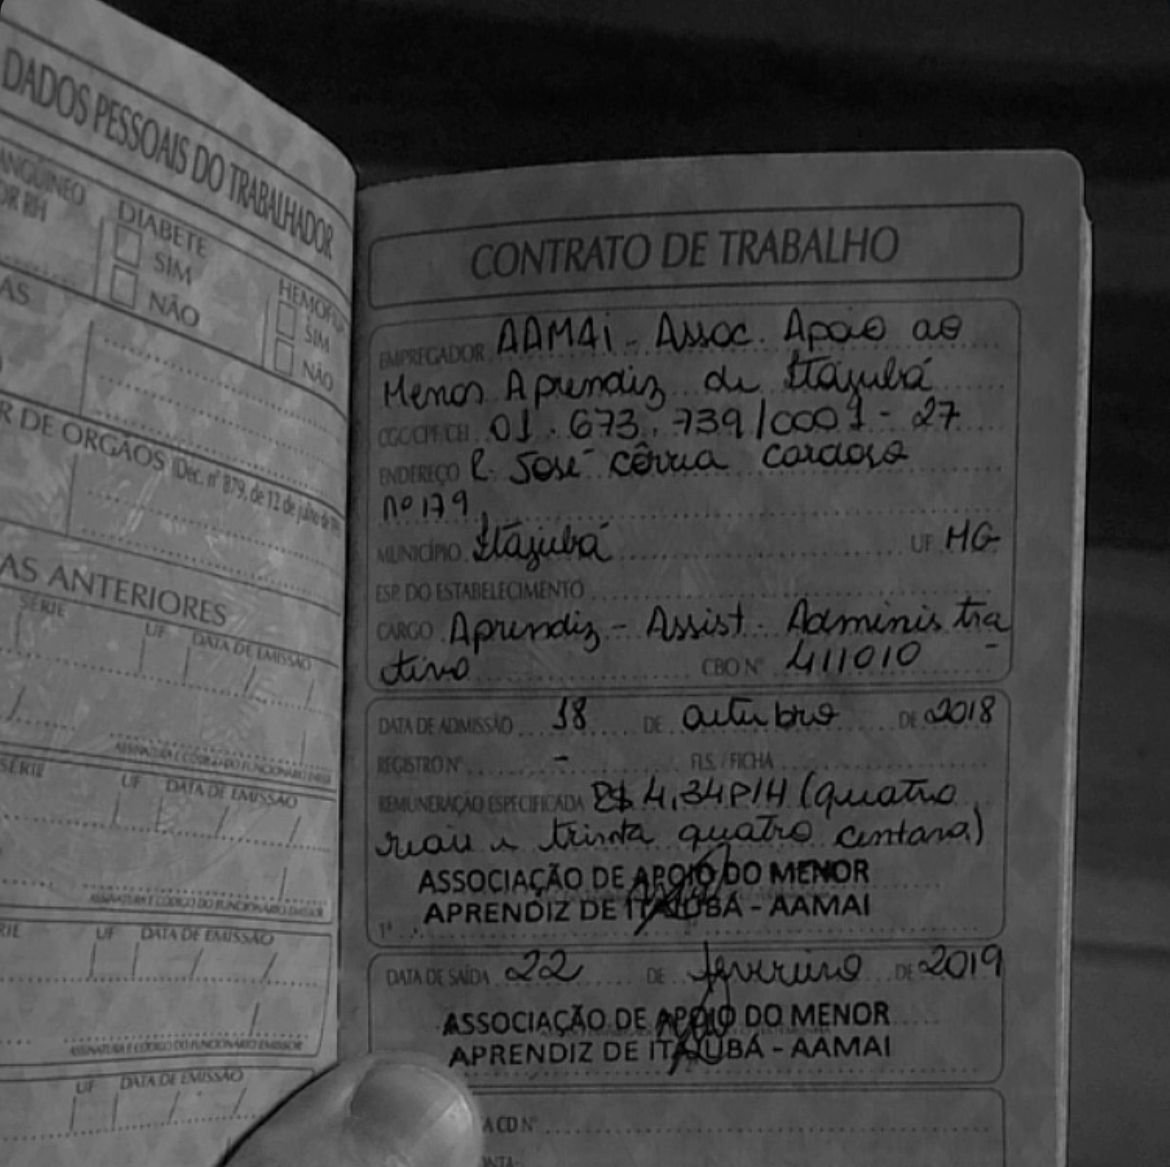 DADOS PESSOAIS DO TRABALHADOR
DIABETE
SIM
NÃO
HEMOFILI
SIM
NÃO
AS
R DE ORGÃOS (Dec. nº 879, de 12 de julho de
AS ANTERIORES
SÉRIE UF DATA DE EMISSÃO
ASSINATURA E CÓDIGO DO FUNCIONÁRIO EMISSOR
SÉRIE UF DATA DE EMISSÃO
ASSINATURA E CÓDIGO DO FUNCIONÁRIO EMISSOR
RIE UF DATA DE EMISSÃO
ASSINATURA E CÓDIGO DO FUNCIONÁRIO EMISSOR
UF DATA DE EMISSÃO
CONTRATO DE TRABALHO
EMPREGADOR AAMAi - Assoc. Apoio ao
Menor Aprendiz de Itajubá
CGC/CPF/CEI 01.673.739/0001-27
ENDEREÇO R. José Côrrea Cardoso
nº 179
MUNICÍPIO Itajubá UF MG
ESP. DO ESTABELECIMENTO
CARGO Aprendiz - Assist. Administra
tivo CBO Nº 411010 -
DATA DE ADMISSÃO 18 DE outubro DE 2018
REGISTRO Nº - FLS. / FICHA
REMUNERAÇÃO ESPECIFICADA R$ 4,34 P/H (quatro
reais e trinta quatro centavos)
ASSOCIAÇÃO DE APOIO DO MENOR
APRENDIZ DE ITAJUBÁ - AAMAI
1ª
DATA DE SAÍDA 22 DE fevereiro DE 2019
ASSOCIAÇÃO DE APOIO DO MENOR
APRENDIZ DE ITAJUBÁ - AAMAI
A CD Nº